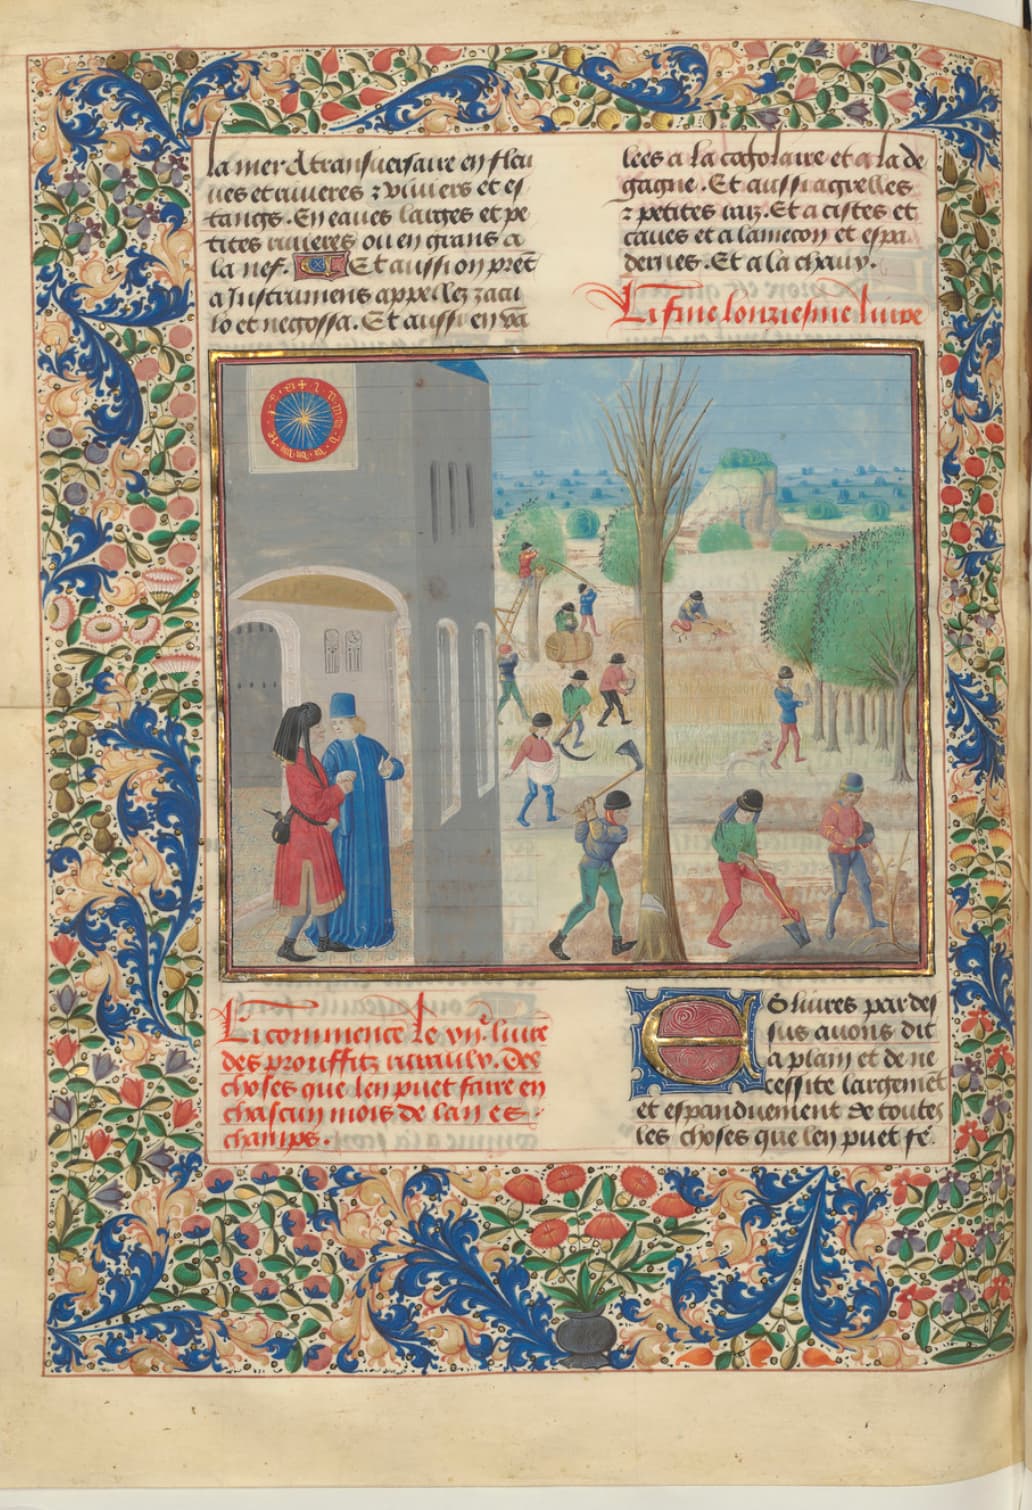 la mer et transuersaire en fleu
ues et riuieres et viuiers et es
tangs. En eaues larges et pe
tites riuieres ou en grans a
la nef. Et aussi on prēt
a Instrumens appellez iacu
lo et negossa. Et aussi en va
lees a la cogolaire et a la de
gagne. Et aussi a grelles
et petites raiz. Et a cistes et
caues et a lamecon et espa
dernes. Et a la chaux.
Cy fine lonziesme liure
Cy commence le xije. liure
des prouffitz ruraulx. Des
choses que len puet faire en
chascun mois de lan es
champs.
ES liures par des
sus auons dit
a plain et de ne
cessite largemēt
et espanduement de toutes
les choses que len puet fē.